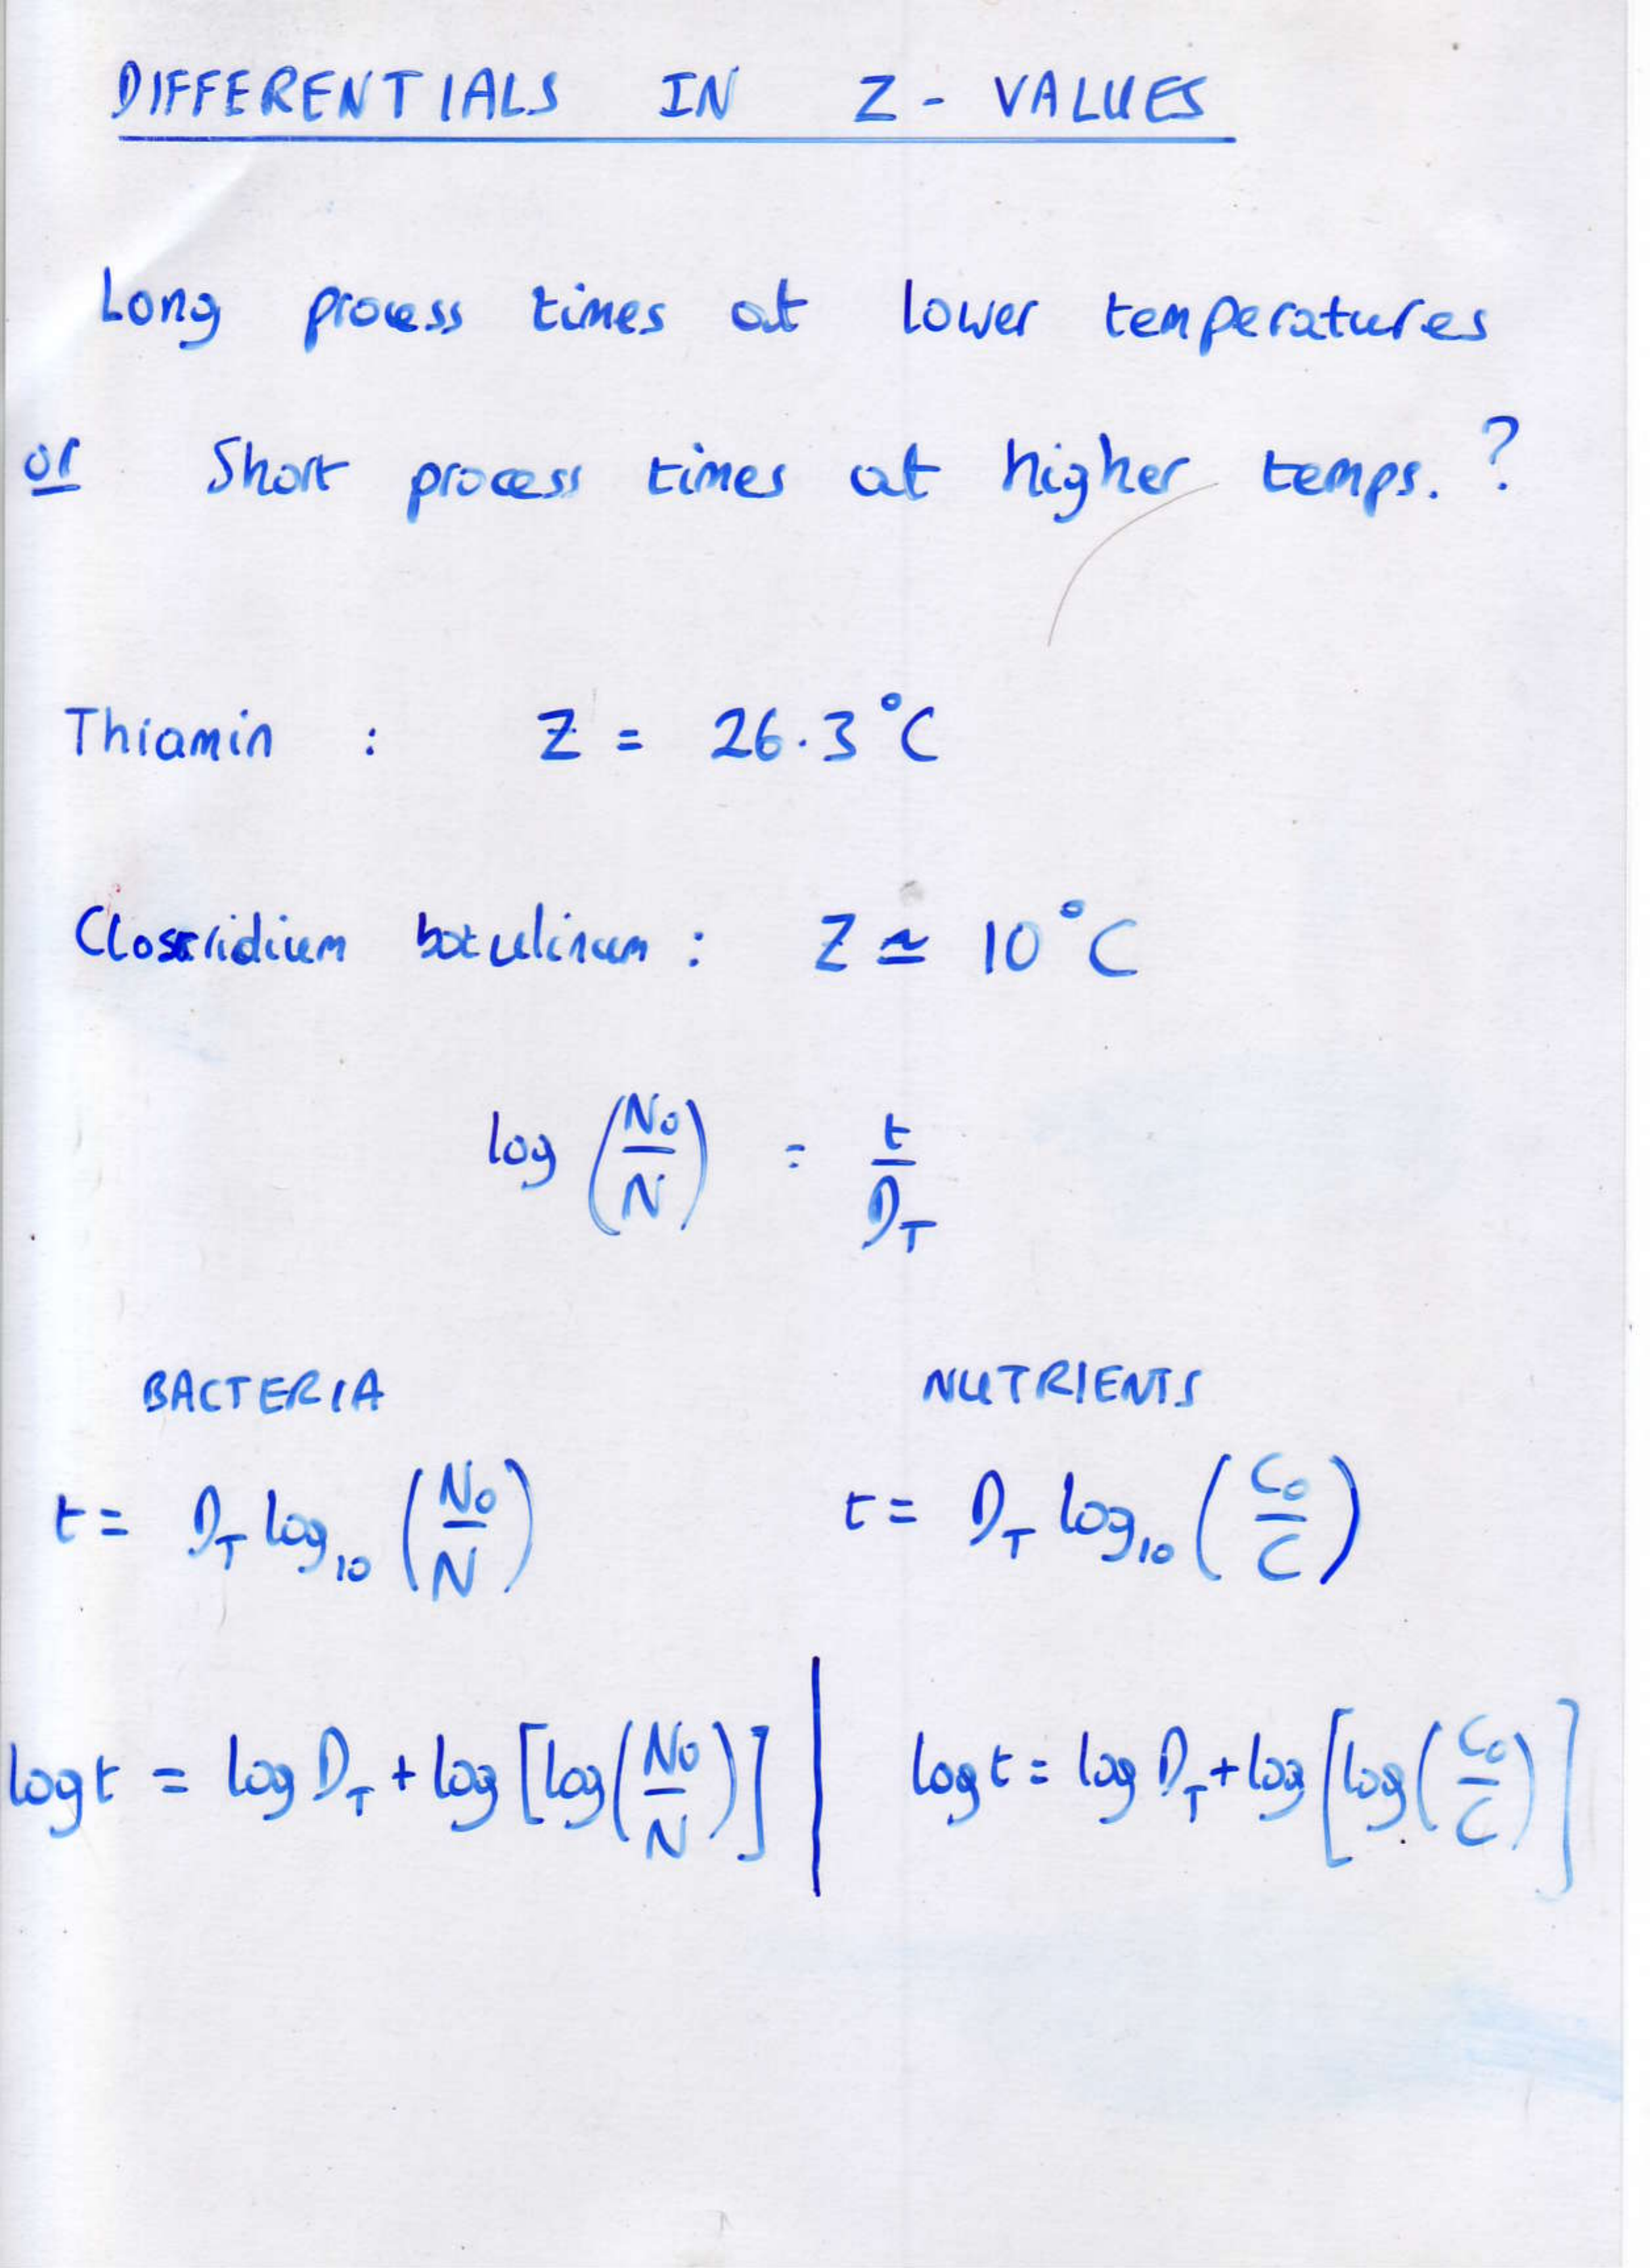 DIFFERENTIALS IN Z - VALUES
Long process times at lower temperatures
or Short process times at higher temps. ?
Thiamin : Z = 26.3°C
Clostridium botulinum : Z ≃ 10°C
log (N₀/N) = t/D_T
BACTERIA NUTRIENTS
t = D_T log₁₀ (N₀/N) t = D_T log₁₀ (C₀/C)
log t = log D_T + log [log(N₀/N)] | log t = log D_T + log [log(C₀/C)]